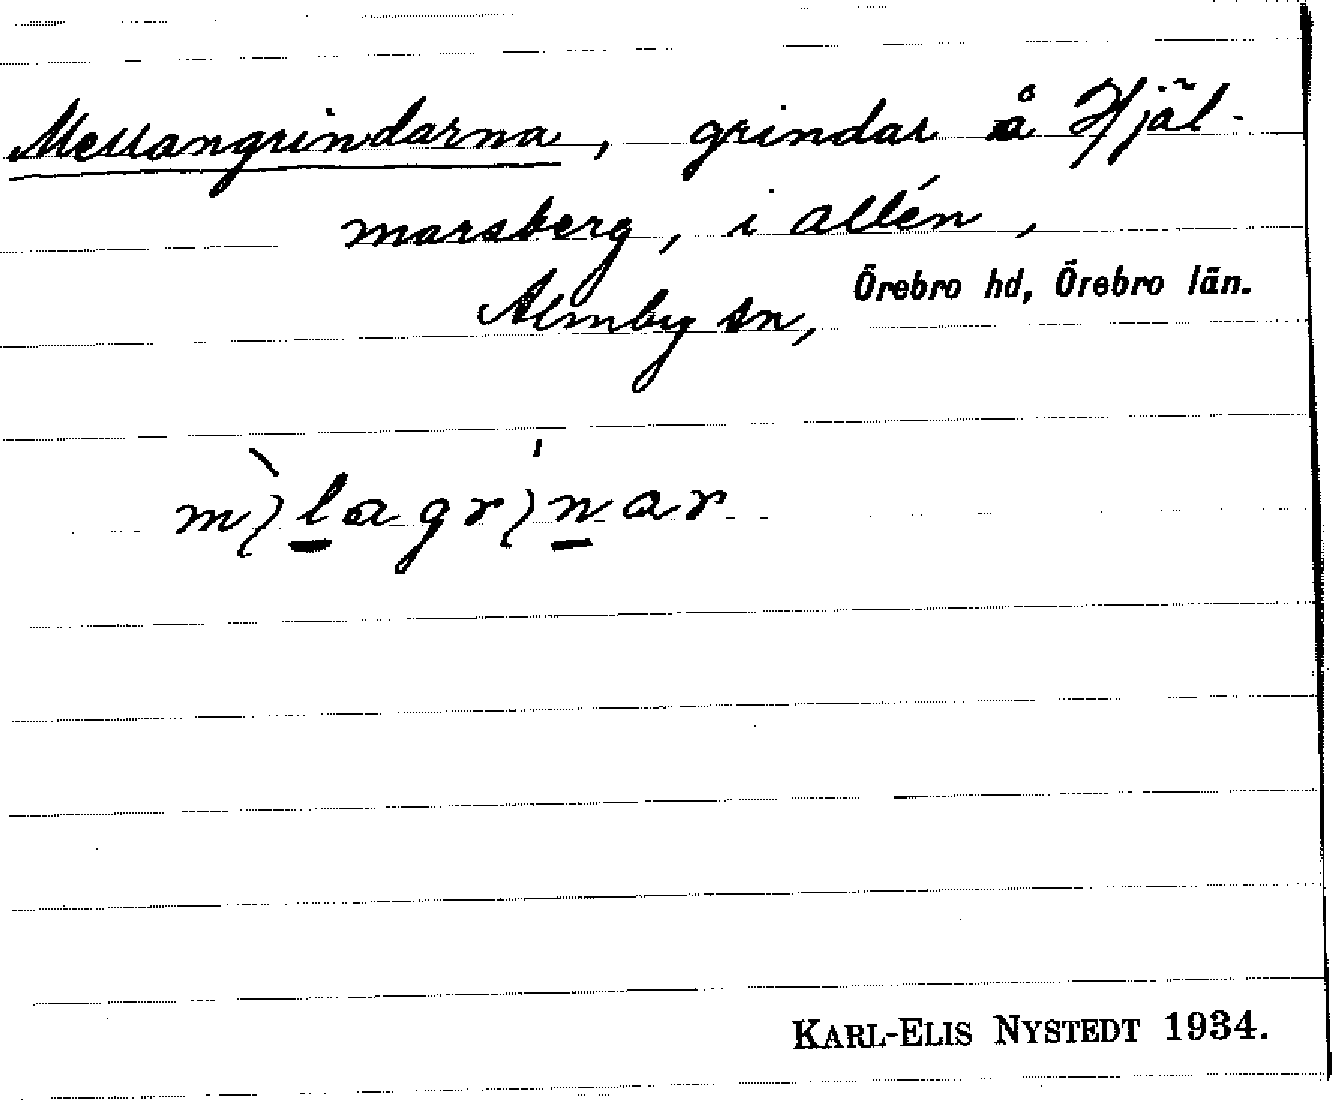 Mellangrindarna, grindar å Hjäl-
marsberg, i allén,
Almby sn, Örebro hd, Örebro län.
KARL-ELIS NYSTEDT 1934.